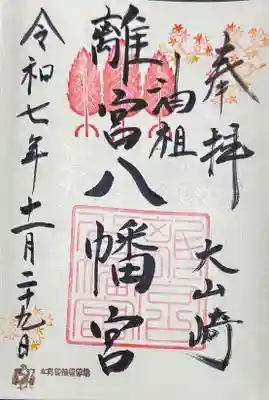 奉拝
大山崎
油祖
離宮八幡宮
令和七年十一月二十九日